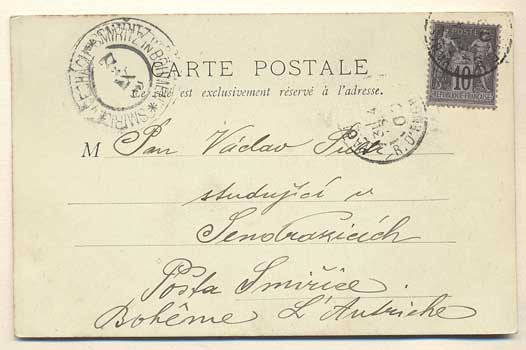 CARTE POSTALE
Ce côté est exclusivement réservé à l'adresse.
M Pan Václav
studující v
Sendražicích
Pošta Smiřice
Bohême L'Autriche
POSTES
10
REPUBLIQUE FRANÇAISE
SMIŘITZ IN BÖHMEN * SMIŘICE V ČECHÁCH